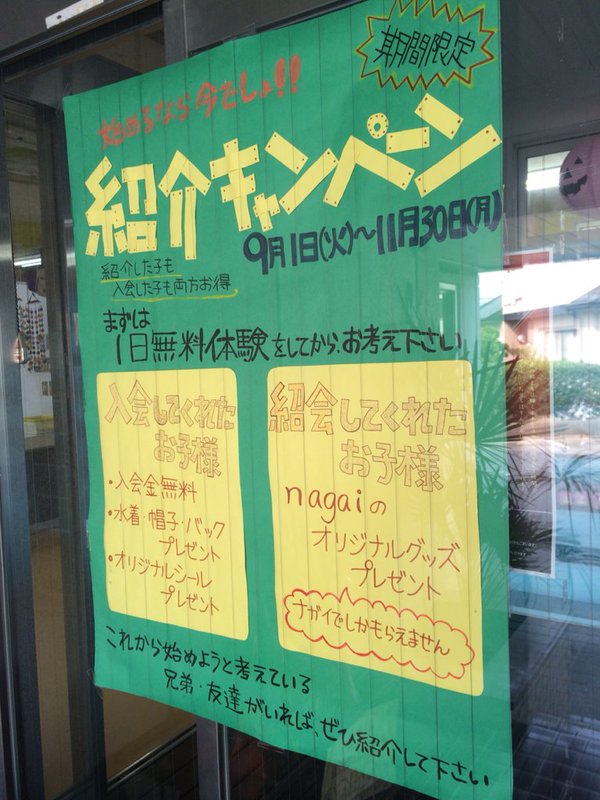 期間限定
始めるなら今でしょ!!
紹介キャンペーン
9月1日(火)~11月30日(月)
紹介した子も
入会した子も両方お得
まずは
1日無料体験をしてから、お考え下さい
入会してくれた
お子様
・入会金無料
・水着・帽子・バック
プレゼント
・オリジナルシール
プレゼント
紹会してくれた
お子様
nagaiの
オリジナルグッズ
プレゼント
ナガイでしかもらえません
これから始めようと考えている
兄弟・友達がいれば、ぜひ紹介して下さい